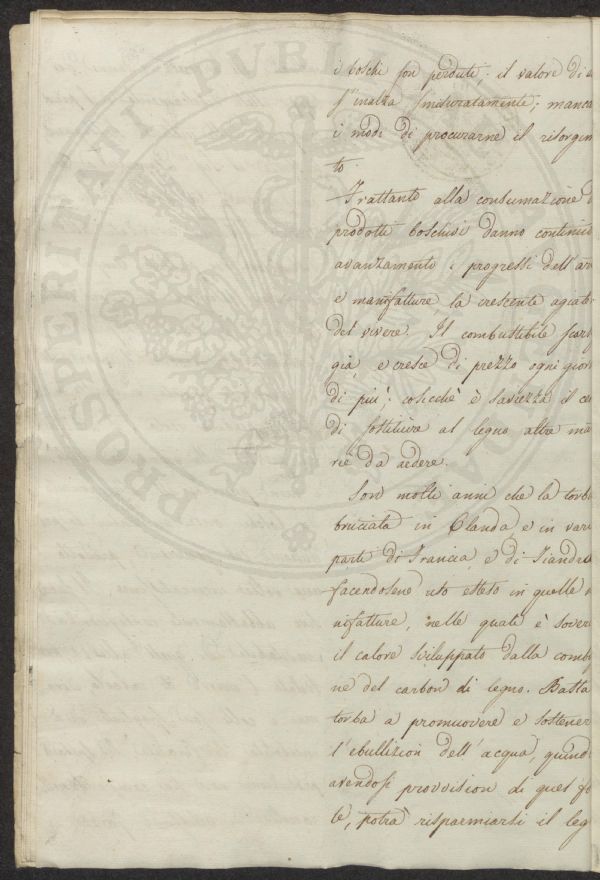 i boschi son perduti; il valore di
s'inalza smisuratamente; manca
i modi di procurarne il risorgim
to.
Frattanto alla consumazione d
prodotti boschivi danno continuo
avanzamento i progressi dell'ar
e manifatture, la crescente agiate
del vivere. Il combustibile scars
già, e cresce di prezzo ogni gior
di più: cosicchè è saviezza il ce
di sostituire al legno altre ma
rie da ardere.
Son molti anni che la torba
bruciata in Olanda, e in vari
parti di Francia, e di Fiandra
facendosene uso esteso in quelle
nifatture, nelle quale è sover
il calore sviluppato dalla comb
ne del carbon di legno. Basta
torba a promuovere e sostener
l'ebullizion dell'acqua, quind
avendosi provvision di quel fo
le, potrà risparmiarsi il leg
PROSPERITATI PVBLI